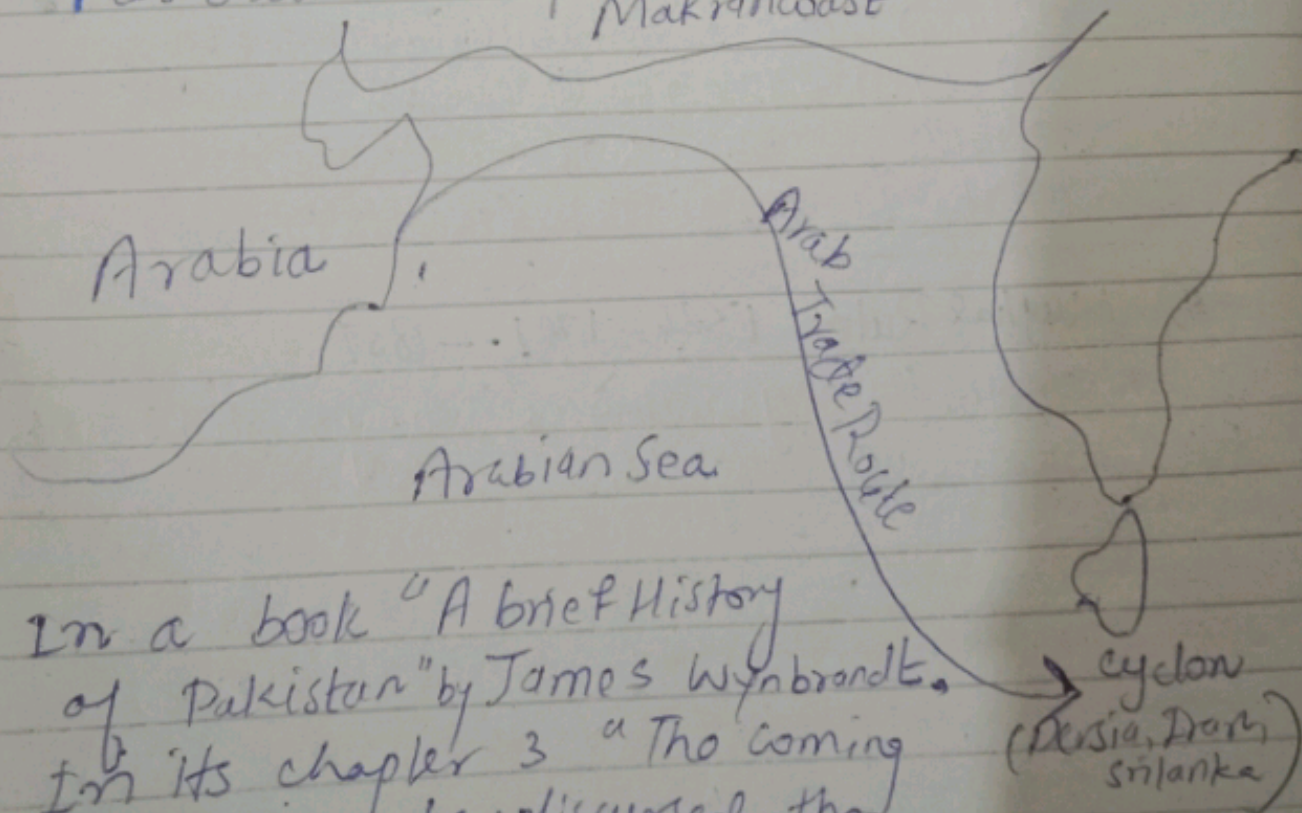 Makrancoast
Arabia
Arab Trade Route
Arabian Sea
In a book "A brief History
of Pakistan" by James Wynbrandt.
In its chapter 3 "The Coming
cyclon
(Persia, Iran,
srilanka)
the